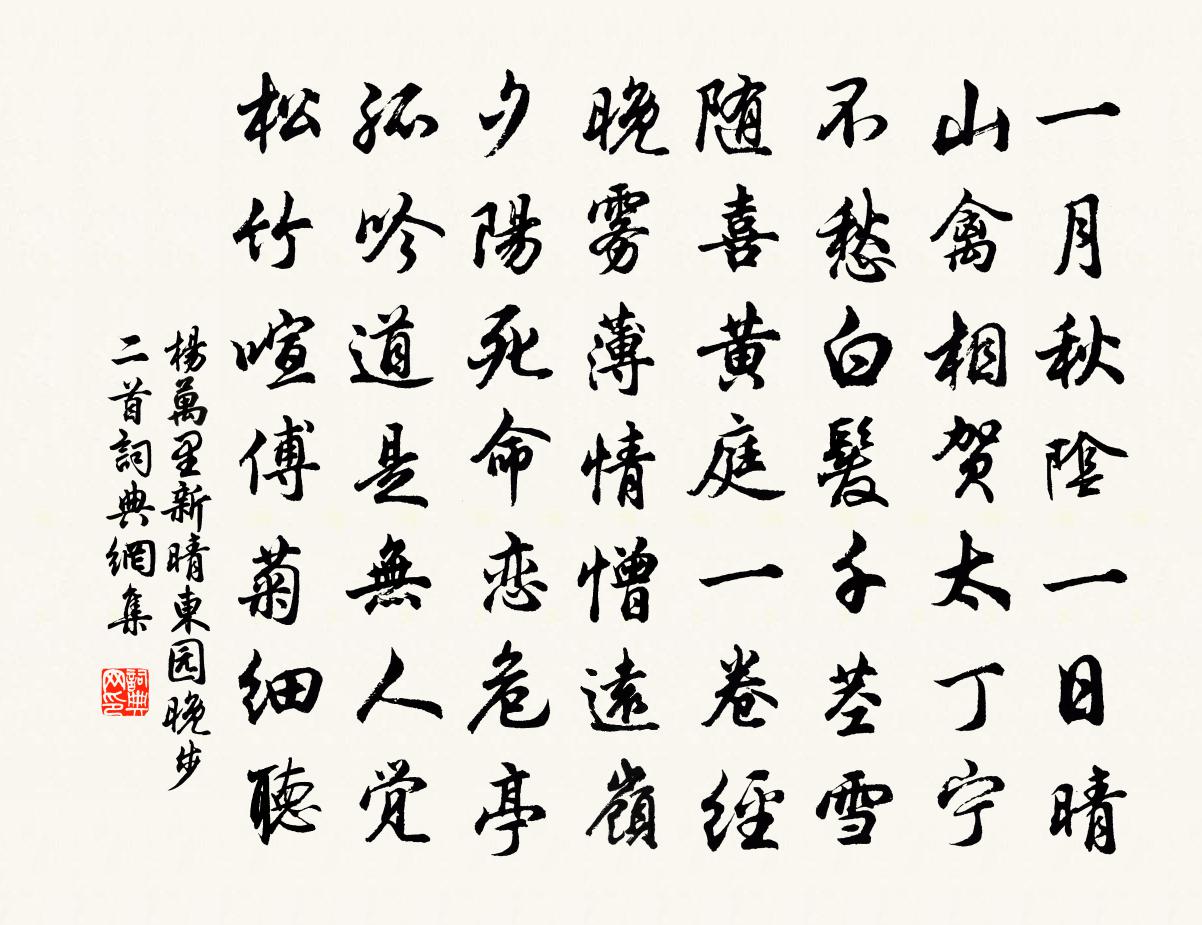 一月秋陰一日晴
山禽相贺太丁宁
不愁白髮千茎雪
随喜黄庭一卷經
晚雾薄情憎遠嶺
夕陽死命恋危亭
孤吟道是無人觉
松竹喧傳菊细聽
楊萬里新晴東园晚步
二首詞典網集
詞典网印